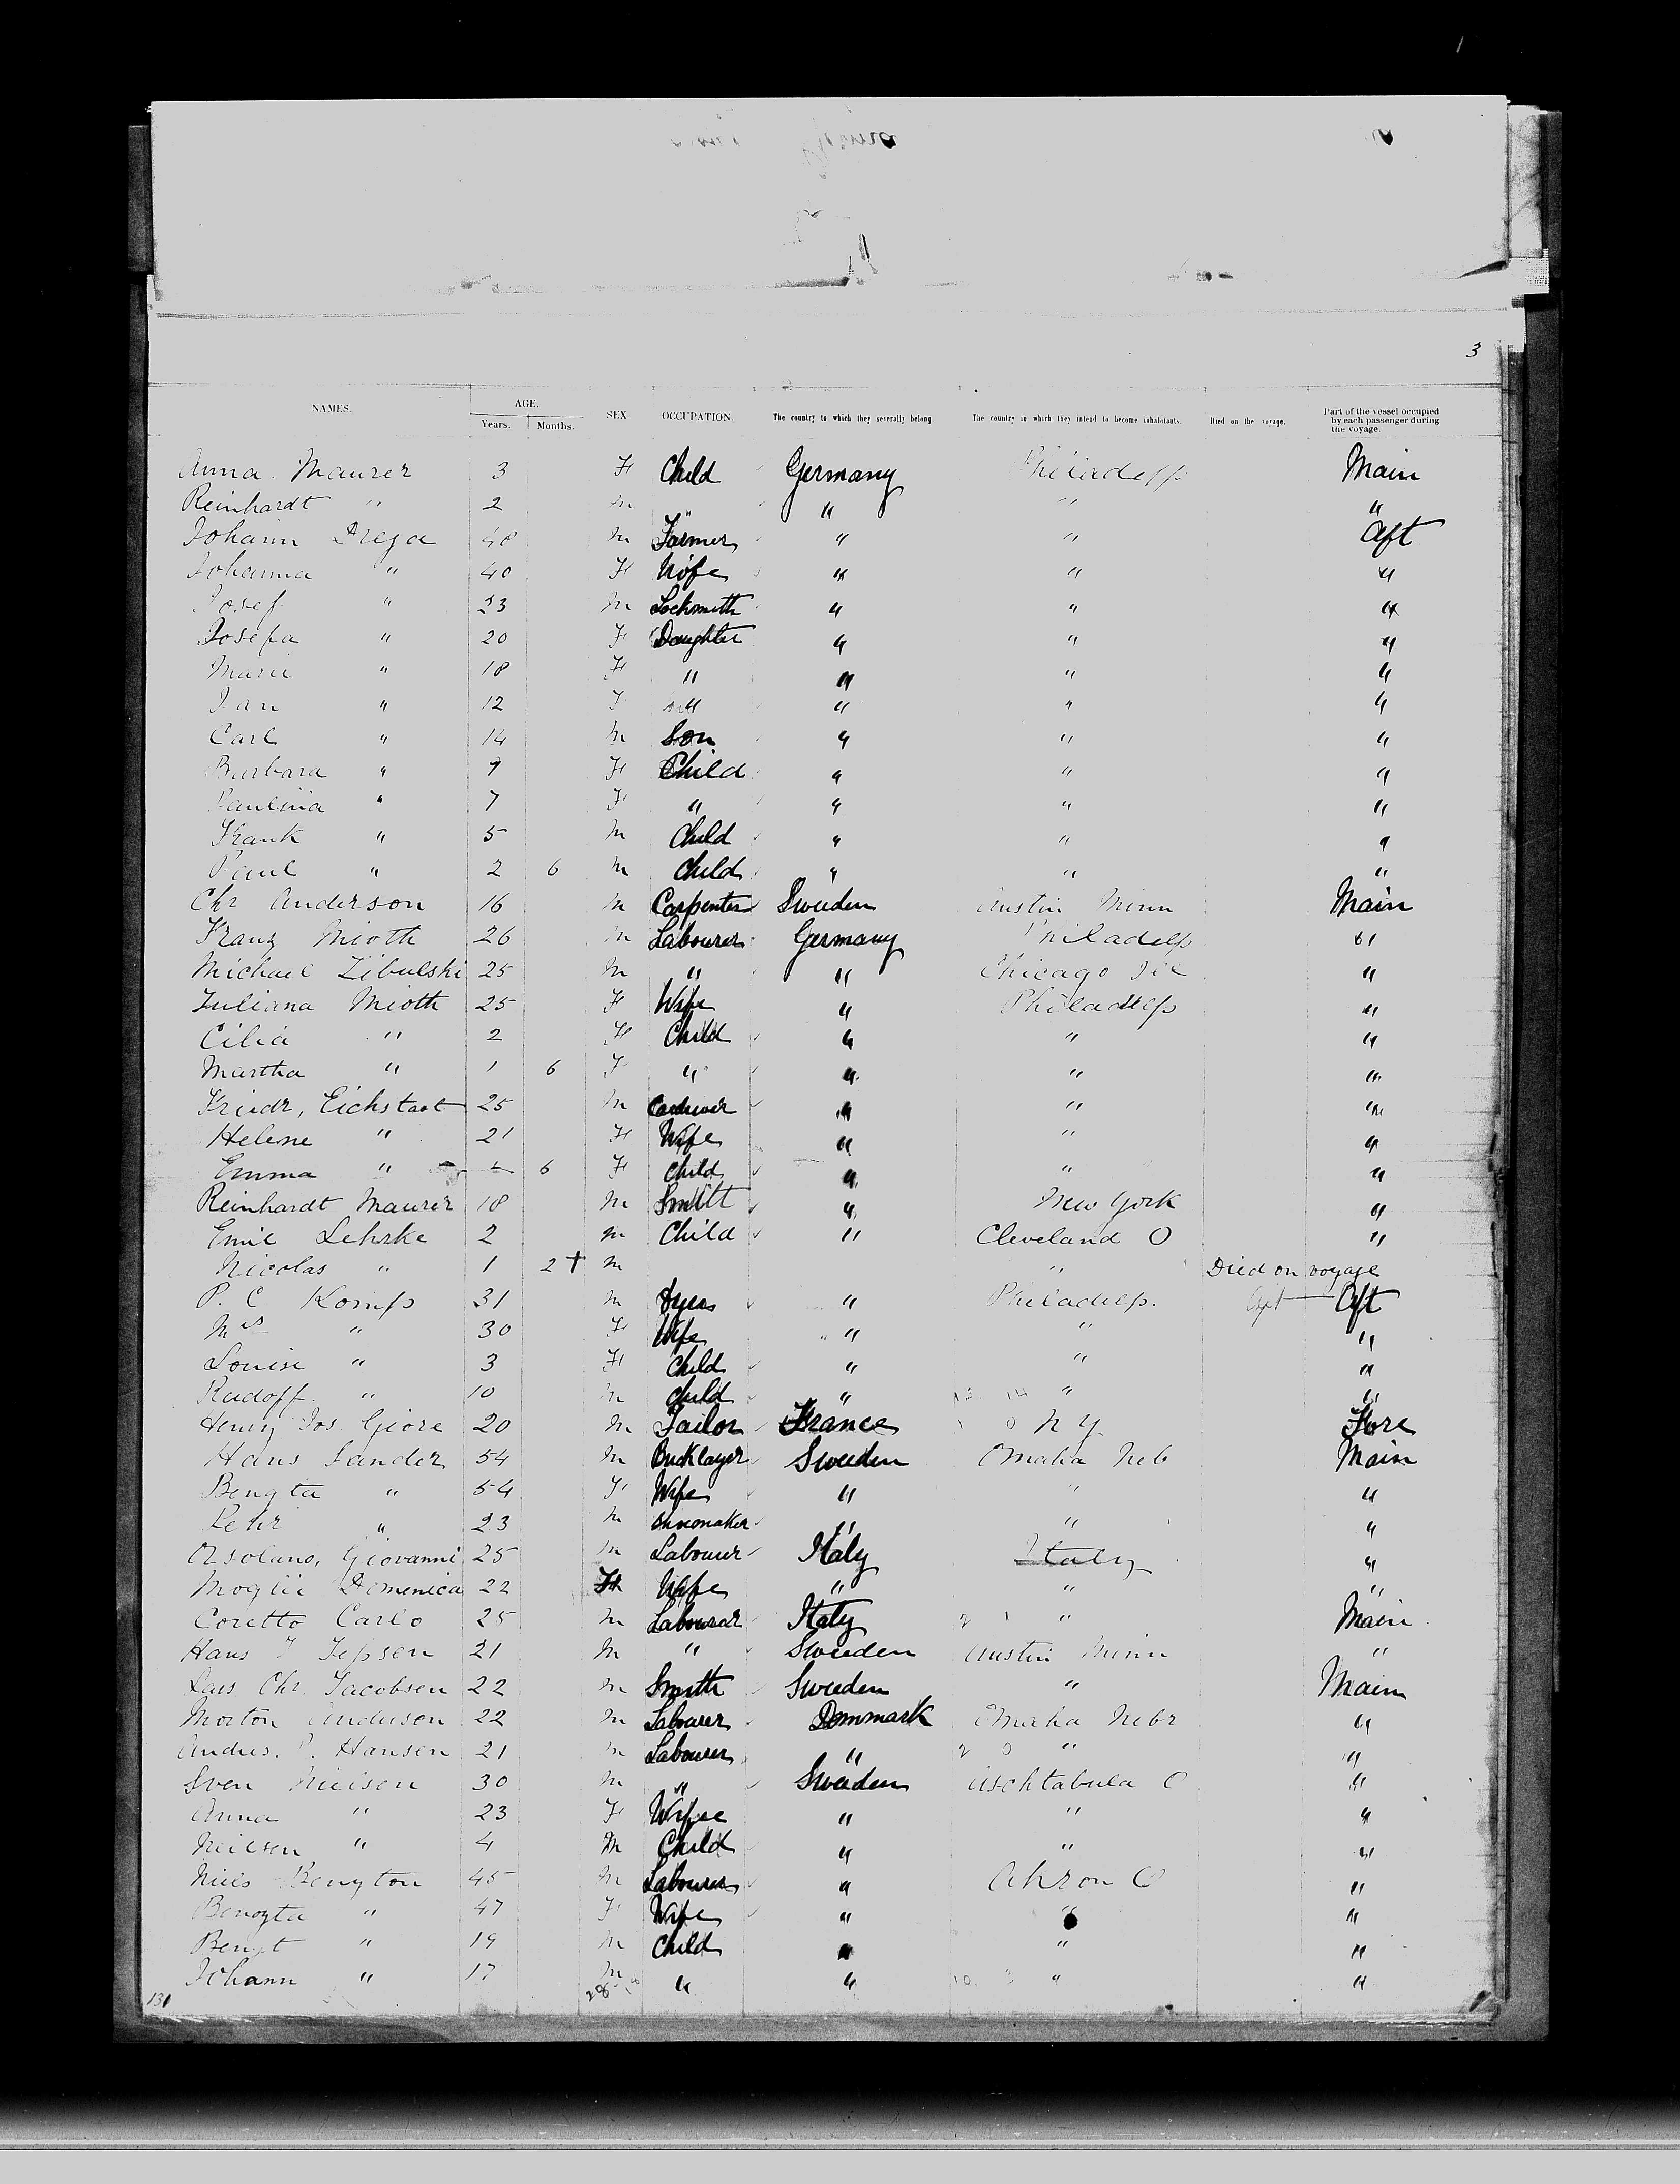 3
NAMES. AGE. SEX. OCCUPATION. The country to which they severally belong. The country in which they intend to become inhabitants. Died on the voyage. Part of the vessel occupied by each passenger during the voyage.
Years. Months.
Anna Maurer 3 F Child Germany Philadelp Main
Reinhardt " 2 m " " " "
Johann Dreja 48 m Farmer " " Aft
Johanna " 40 F Wife " " "
Josef " 23 m Locksmith " " "
Josefa " 20 F Daughter " " "
Marie " 18 F " " " "
" 12 F " " " "
Carl " 14 m Son " " "
Barbara " 9 F Child " " "
Paulina " 7 F " " " "
Frank " 5 m Child " " "
Paul " 2 6 m Child " " "
Chr Anderson 16 m Carpenter Sweden Austin Minn Main
Franz Mioth 26 m Labourer Germany Philadelp "
Michael Zibulski 25 m " " Chicago Ill "
Juliana Mioth 25 F Wife " Philadelp "
Cilia " 2 F Child " " "
Martha " 1 6 F " " " "
Friedr, Eichstaet 25 m " " "
Helene " 21 F Wife " " "
Emma " 6 F Child " " "
Reinhardt Maurer 18 m Smith " New York "
Emil Lehrke 2 m Child " Cleveland O "
Nicolas " 1 2 † m " Died on voyage
P. C Komp 31 m Dyer " Philadelp. Aft
Mrs " 30 F Wife " " "
Louise " 3 F Child " " "
Rudoff " 10 m Child " 13 14 " "
Henry Jos Giore 20 m Tailor France N Y Fore
Hans Sander 54 m Bricklayer Sweden Omaha Neb Main
Bengta " 54 F Wife " " "
Pehr " 23 m Shoemaker " " "
Orsolano, Giovanni 25 m Labourer Italy Italy "
Moglie Domenica 22 F Wife " " "
Coretto Carlo 25 m Labourer Italy 2 1 " Main
Hans J Jepsen 21 m " Sweden Austin Minn "
Lars Chr. Jacobsen 22 m Smith Sweden " Main
Morton Anderson 22 m Labourer Denmark Omaha Nebr "
Andres. P. Hansen 21 m Labourer " 2 0 " "
Sven Nielsen 30 m " Sweden Aschtabula O "
Anna " 23 F Wife " " "
Neilsen " 4 m Child " " "
Niels Bengton 45 m Labourer " Akron O "
Bengta " 47 F Wife " " "
Bengt " 19 m Child " " "
Johann " 17 m " " 10 3 " "
131